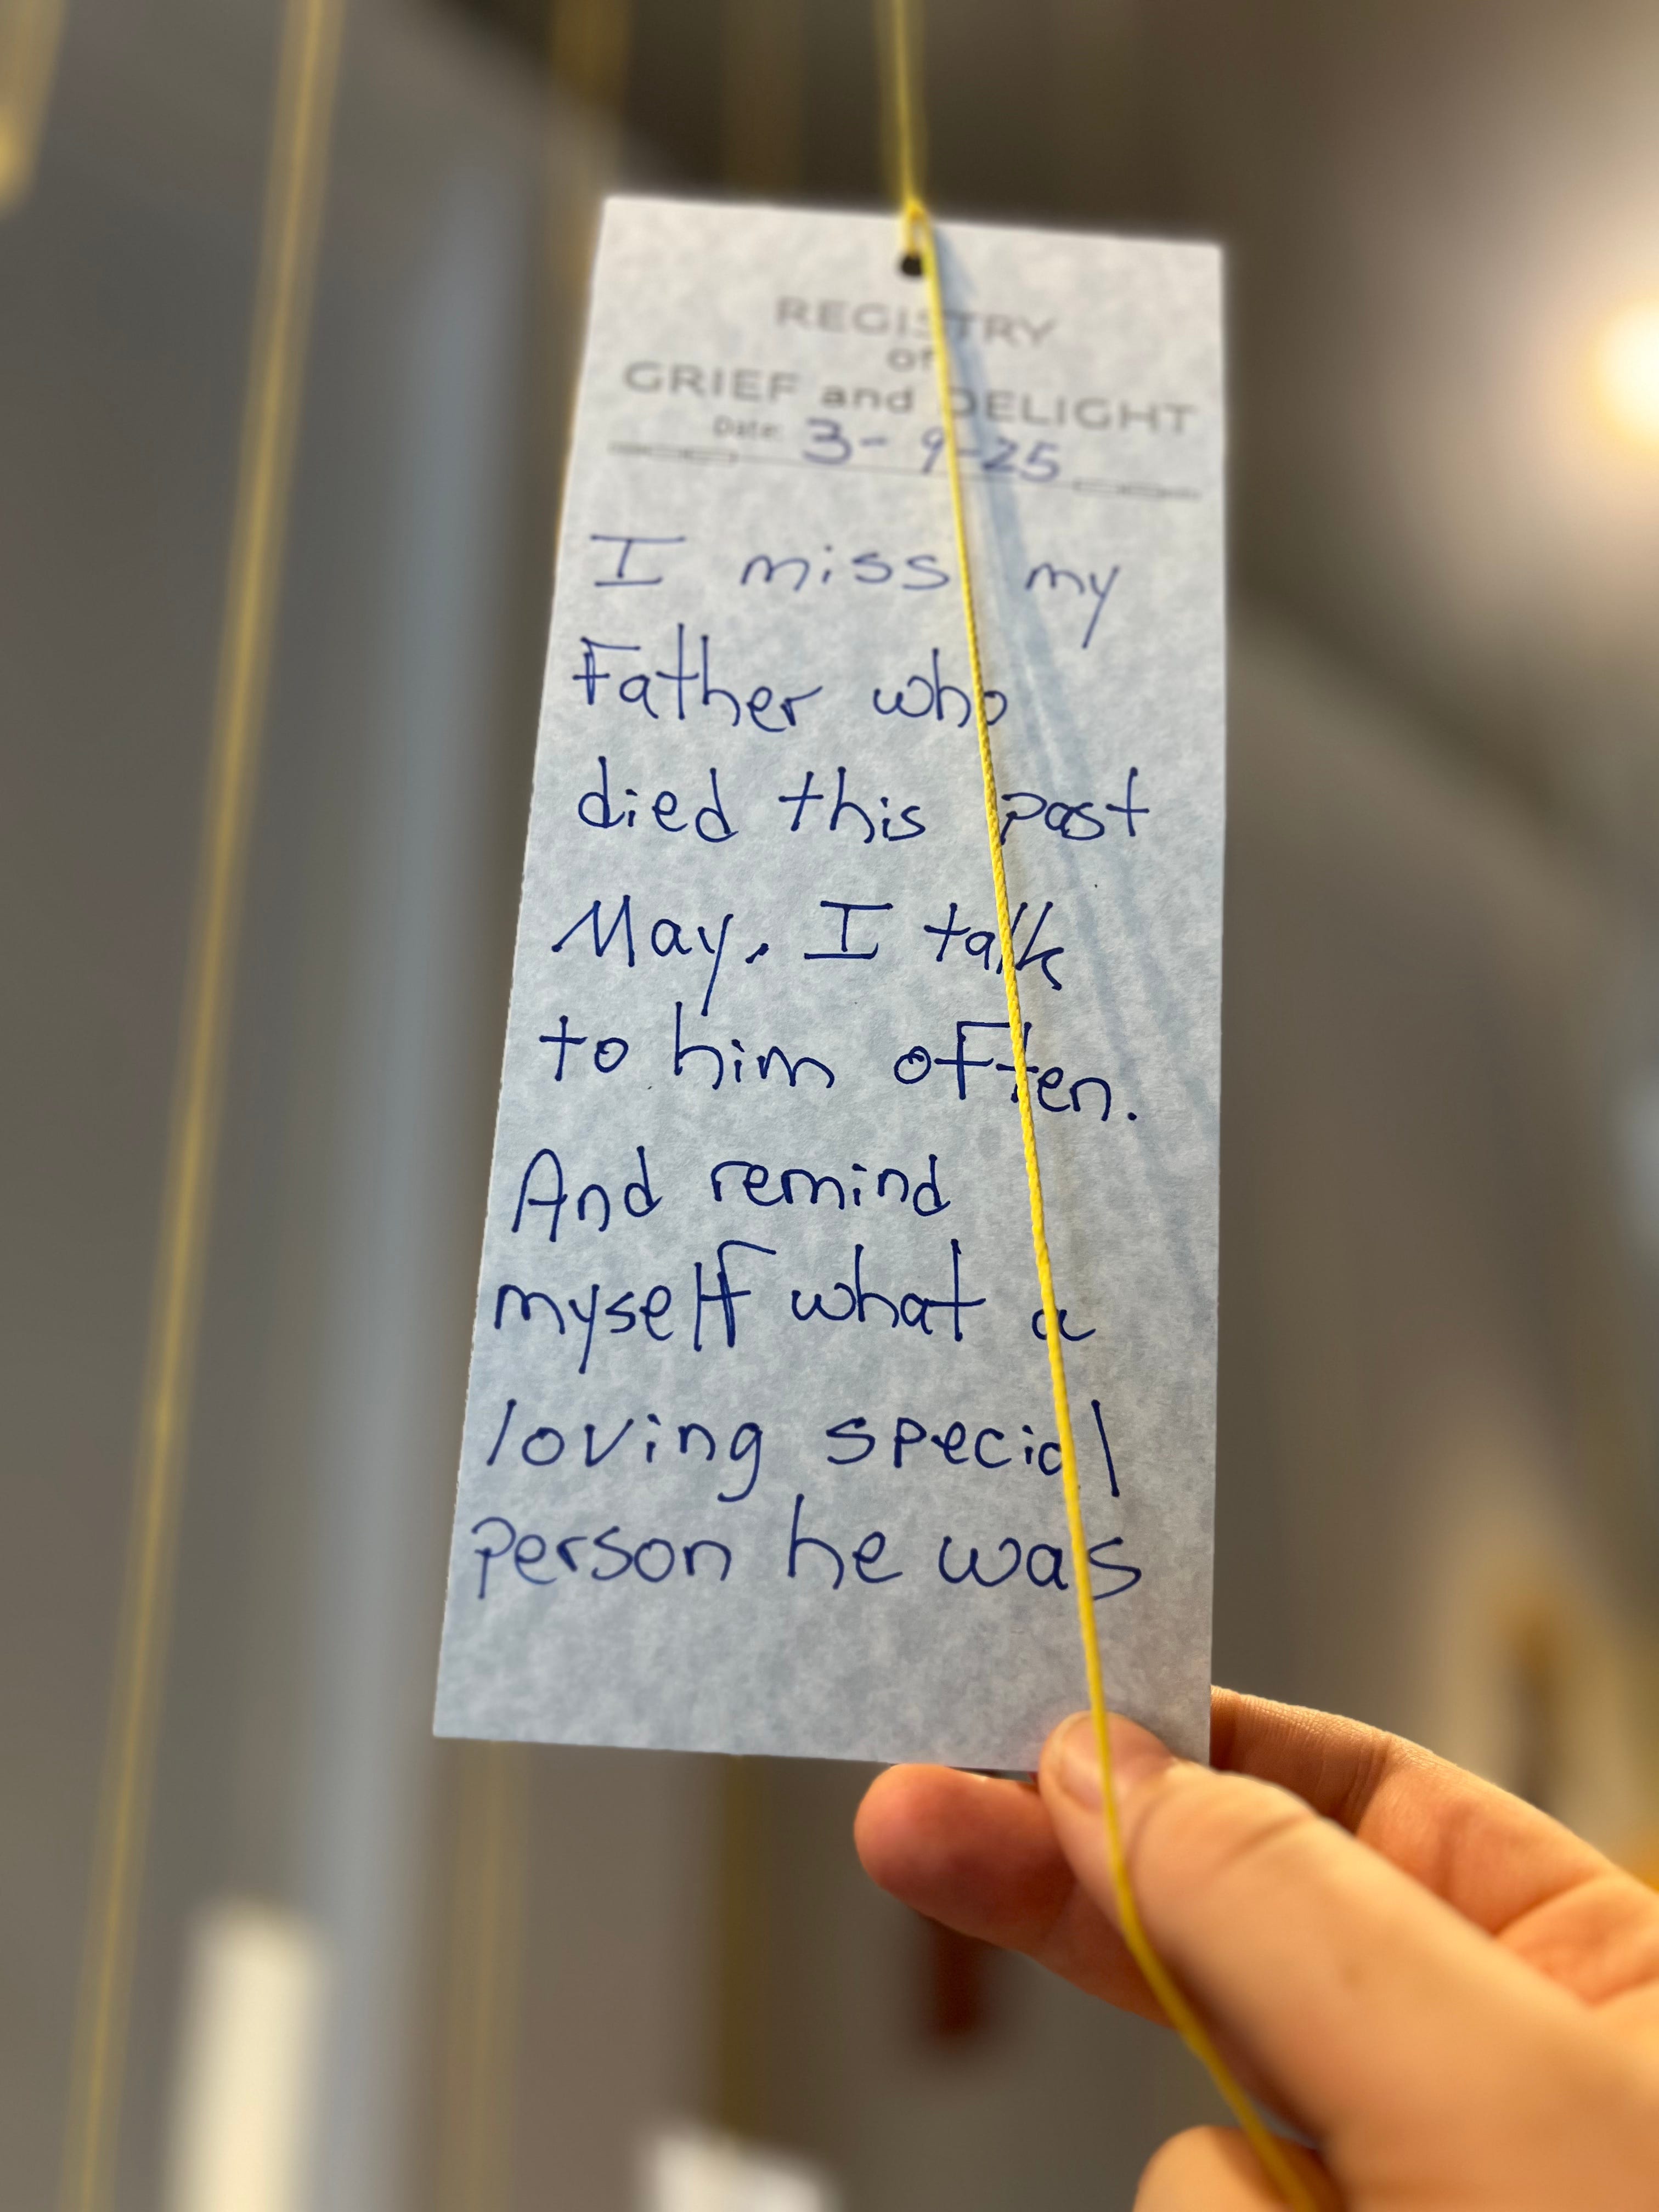 REGISTRY
of
GRIEF and DELIGHT
Date: 3-9-25
I miss my
Father who
died this past
May. I talk
to him often.
And remind
myself what a
loving special
person he was